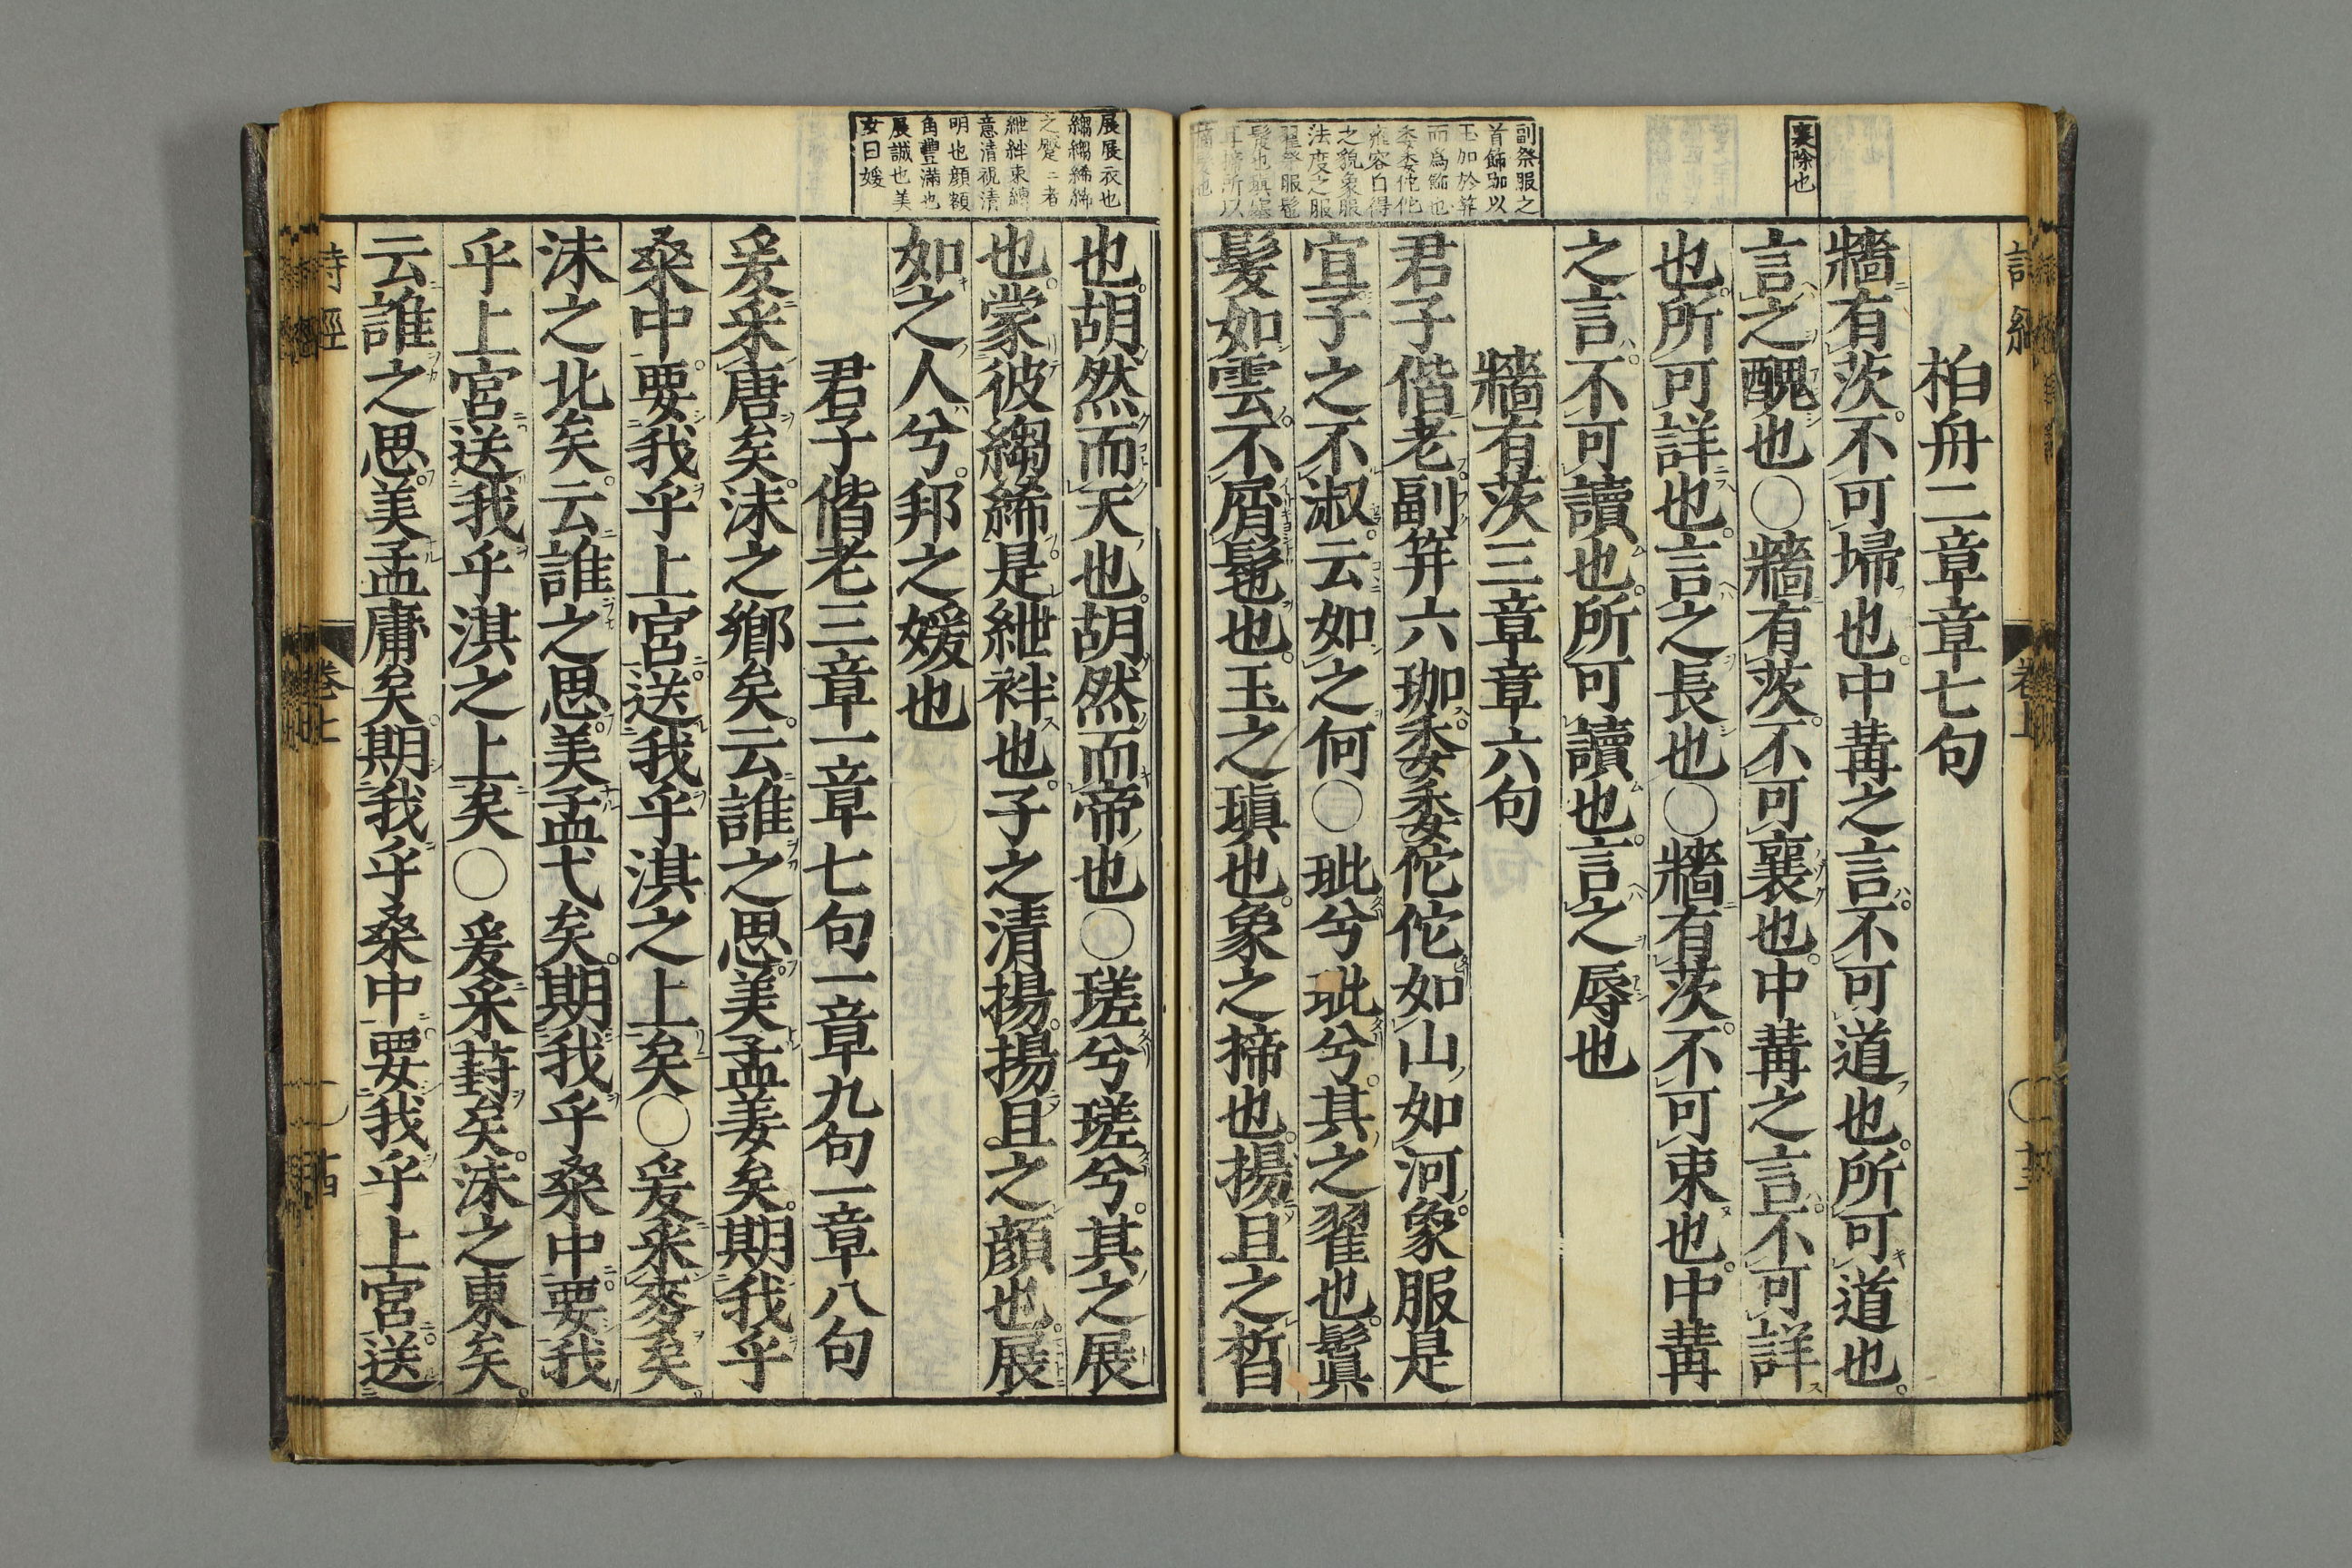 詩經 卷上 〇十三
襄除也
柏舟二章章七句
牆有茨不可埽也中冓之言不可道也所可道也
言之醜也〇牆有茨不可襄也中冓之言不可詳
也所可詳也言之長也〇牆有茨不可束也中冓
之言不可讀也所可讀也言之辱也
牆有茨三章章六句
副祭服之
首飾珈以
玉加於筓
而爲飾也
委委佗佗
雍容自得
之貌象服
法度之服
翟祭服髢
髲也瑱塞
耳揥所以
君子偕老副笄六珈委委佗佗如山如河象服是
宜子之不淑云如之何〇玼兮玼兮其之翟也鬒
髮如雲不屑髢也玉之瑱也象之揥也揚且之皙
展展衣也
縐縐絺絺
之蹙〻者
紲絆束縛
意清視清
明也顔額
角豐滿也
展誠也美
女曰媛
也胡然而天也胡然而帝也〇瑳兮瑳兮其之展
也蒙彼縐絺是紲袢也子之清揚揚且之顔也展
如之人兮邦之媛也
君子偕老三章一章七句一章九句一章八句
爰采唐矣沬之鄕矣云誰之思美孟姜矣期我乎
桑中要我乎上宮送我乎淇之上矣〇爰采麥矣
沬之北矣云誰之思美孟弋矣期我乎桑中要我
乎上宮送我乎淇之上矣〇爰采葑矣沬之東矣
云誰之思美孟庸矣期我乎桑中要我乎上宮送
詩經 卷上 〇十四